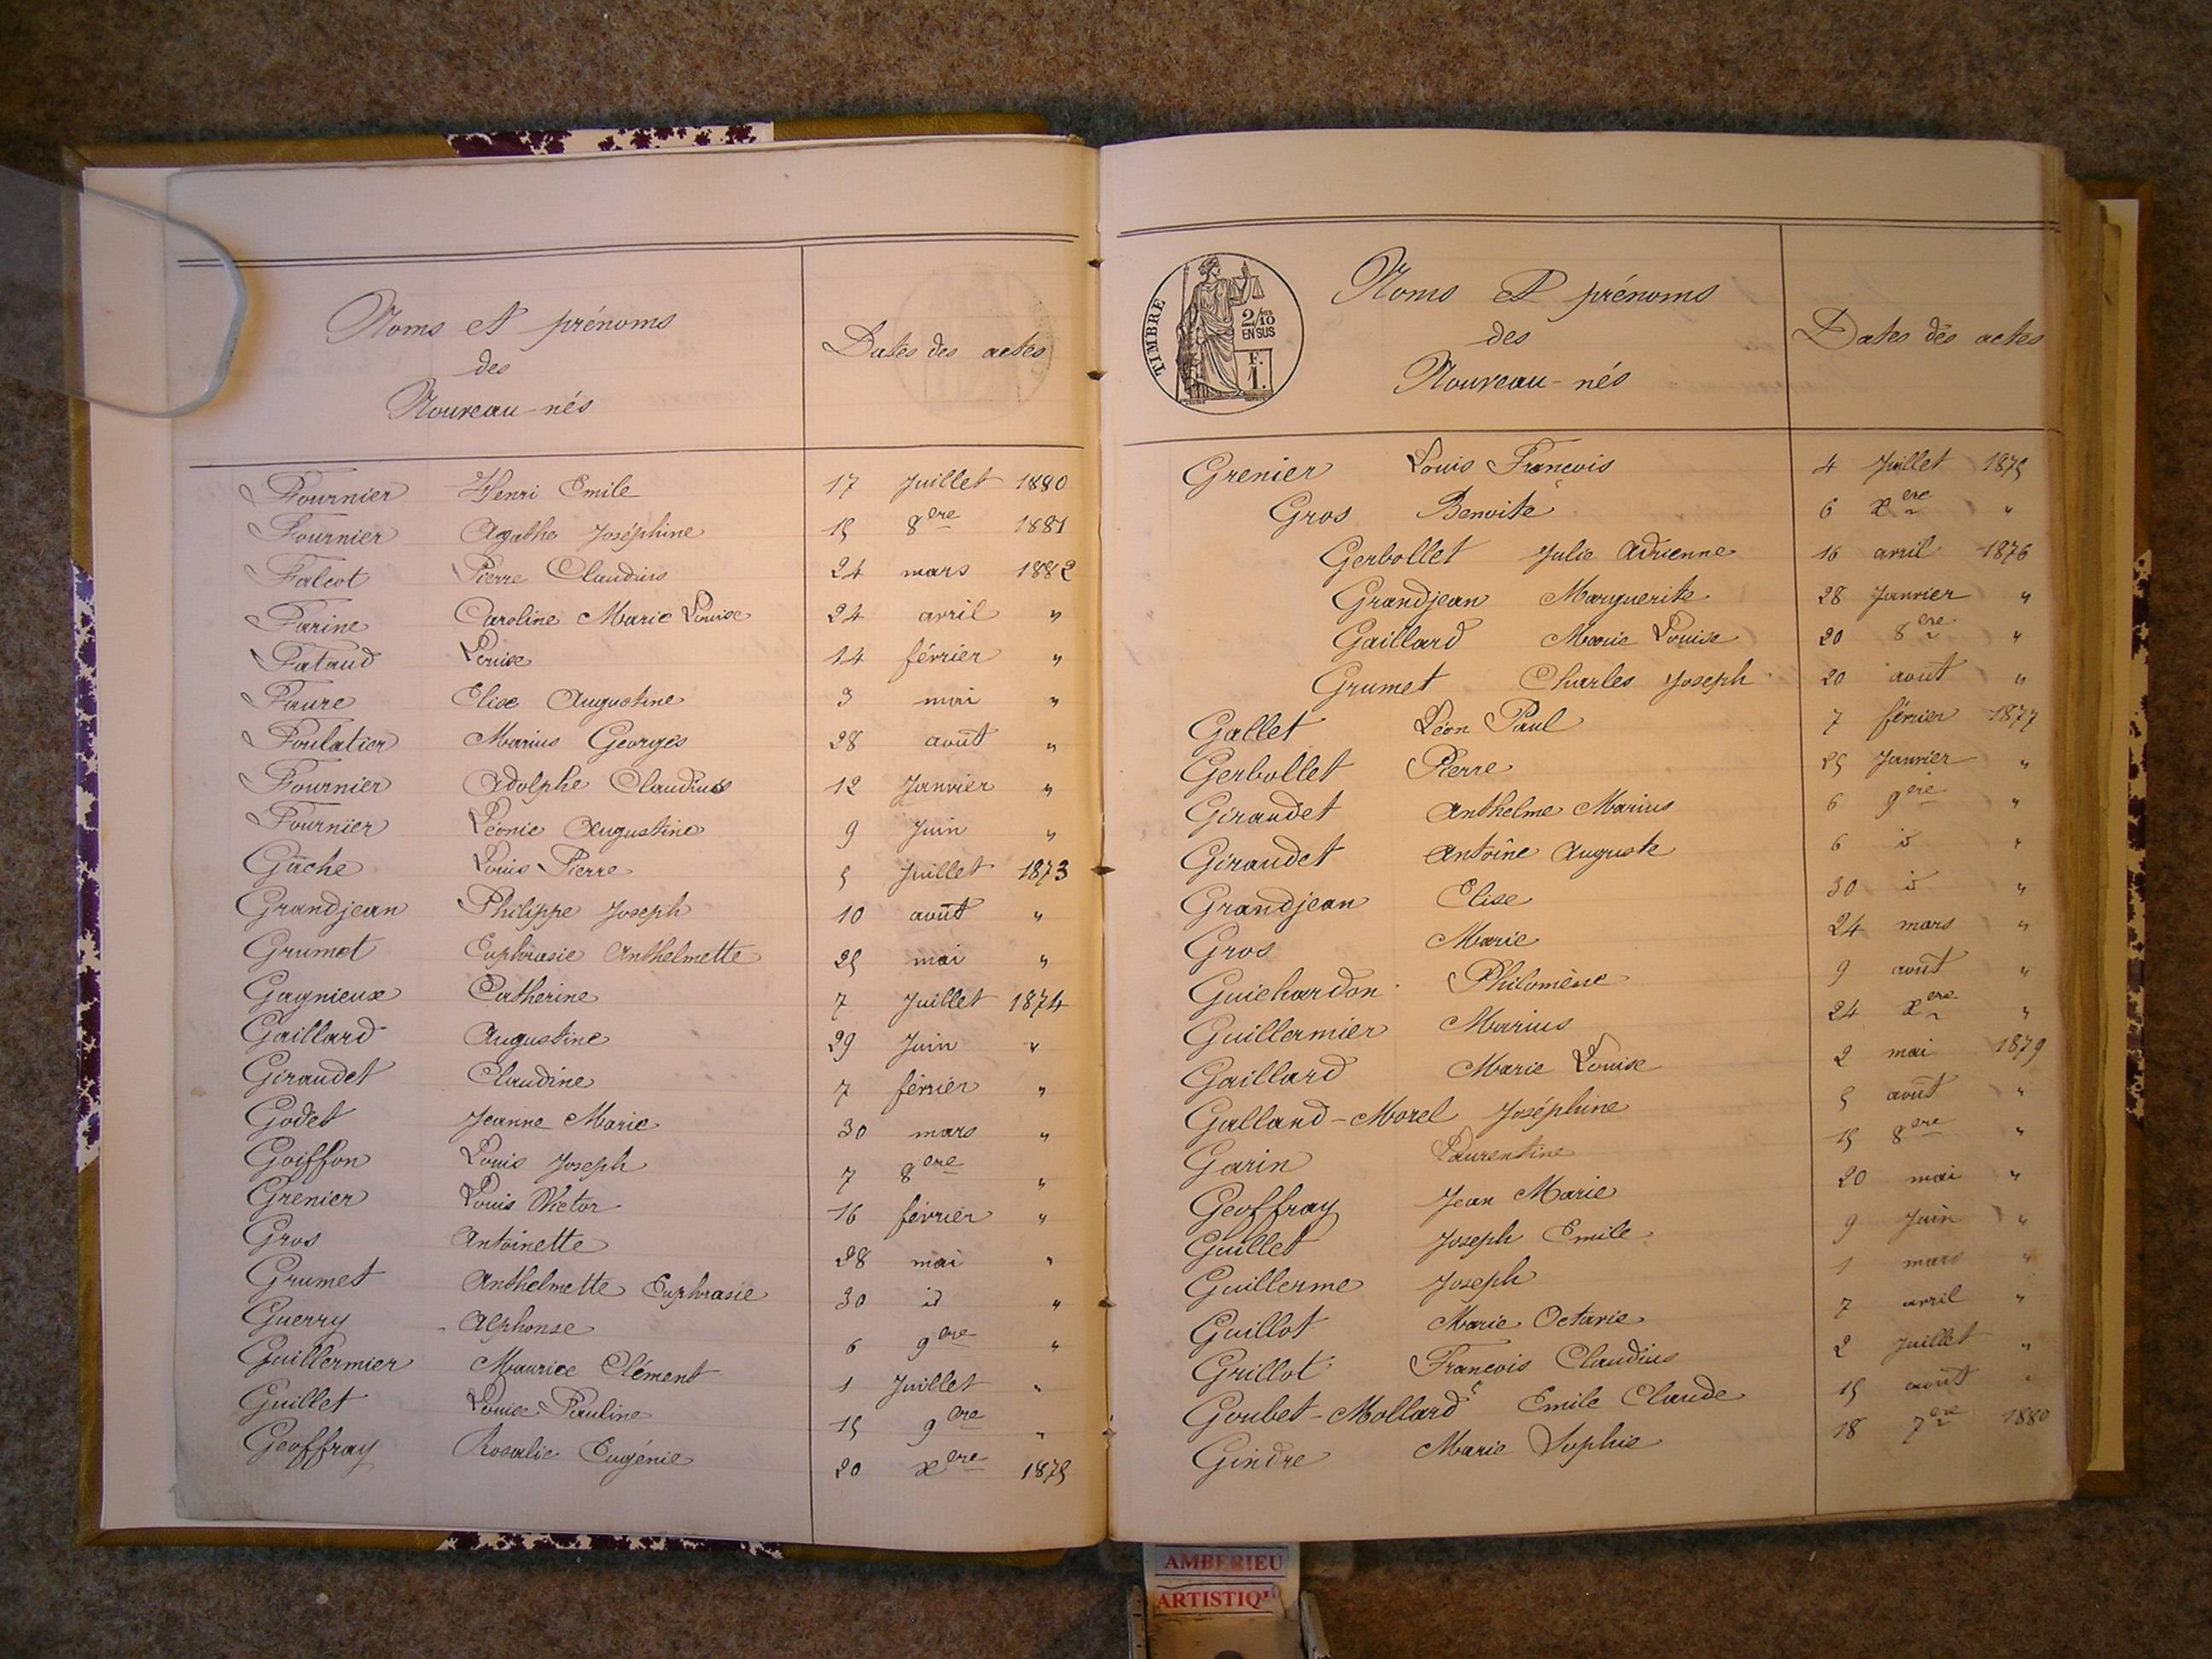 Noms et prénoms
des
Nouveau-nés
Dates des actes
Fournier Henri Emile 17 Juillet 1880
Fournier Agathe Joséphine 15 8ere 1881
Falcot Pierre Claudius 24 mars 1882
Farine Caroline Marie Louise 24 avril "
Fataud Louise 14 février "
Faure Elise Augustine 3 mai "
Foulatier Marius Georges 28 août "
Fournier Adolphe Claudius 12 Janvier "
Fournier Léonie Augustine 9 Juin "
Gâche Louis Pierre 5 Juillet 1873
Grandjean Philippe Joseph 10 août "
Grumet Euphrasie Anthelmette 25 mai "
Gagnieux Catherine 7 Juillet 1874
Gaillard Augustine 29 Juin "
Giraudet Claudine 7 février "
Godet Jeanne Marie 30 mars "
Goiffon Louis Joseph 7 8ere "
Grenier Louis Victor 16 février "
Gros Antoinette 28 mai "
Grumet Anthelmette Euphrasie 30 id "
Guerry Alphonse 6 9ere "
Guillermier Maurice Clément 1 Juillet "
Guillet Louise Pauline 15 9ere "
Geoffray Rosalie Eugénie 20 xere 1875
TIMBRE
2/10
EN SUS
F.
1.
Noms et prénoms
des
Nouveau-nés
Dates des actes
Grenier Louis François 4 Juillet 1875
Gros Benoite 6 xere "
Gerbollet Julie Adrienne 16 avril 1876
Grandjean Marguerite 28 Janvier "
Gaillard Marie Louise 20 8ere "
Grumet Charles Joseph 20 août "
Gallet Léon Paul 7 février 1877
Gerbollet Pierre 25 Janvier "
Giraudet Anthelme Marius 6 9ere "
Giraudet Antoine Auguste 6 id "
Grandjean Elise 30 id "
Gros Marie 24 mars "
Guichardon Philomène 9 août "
Guillermier Marius 24 xere "
Gaillard Marie Louise 2 mai 1879
Galland-Morel Joséphine 5 août "
Garin Laurentine 15 8ere "
Geoffray Jean Marie 20 mai "
Guillet Joseph Emile 9 Juin "
Guillerme Joseph 1 mars "
Guillot Marie Octavie 7 avril "
Grillot François Claudius 2 Juillet "
Goubet-Mollard Emile Claude 15 août "
Gindre Marie Sophie 18 7ere 1880
AMBERIEU
ARTISTIQ